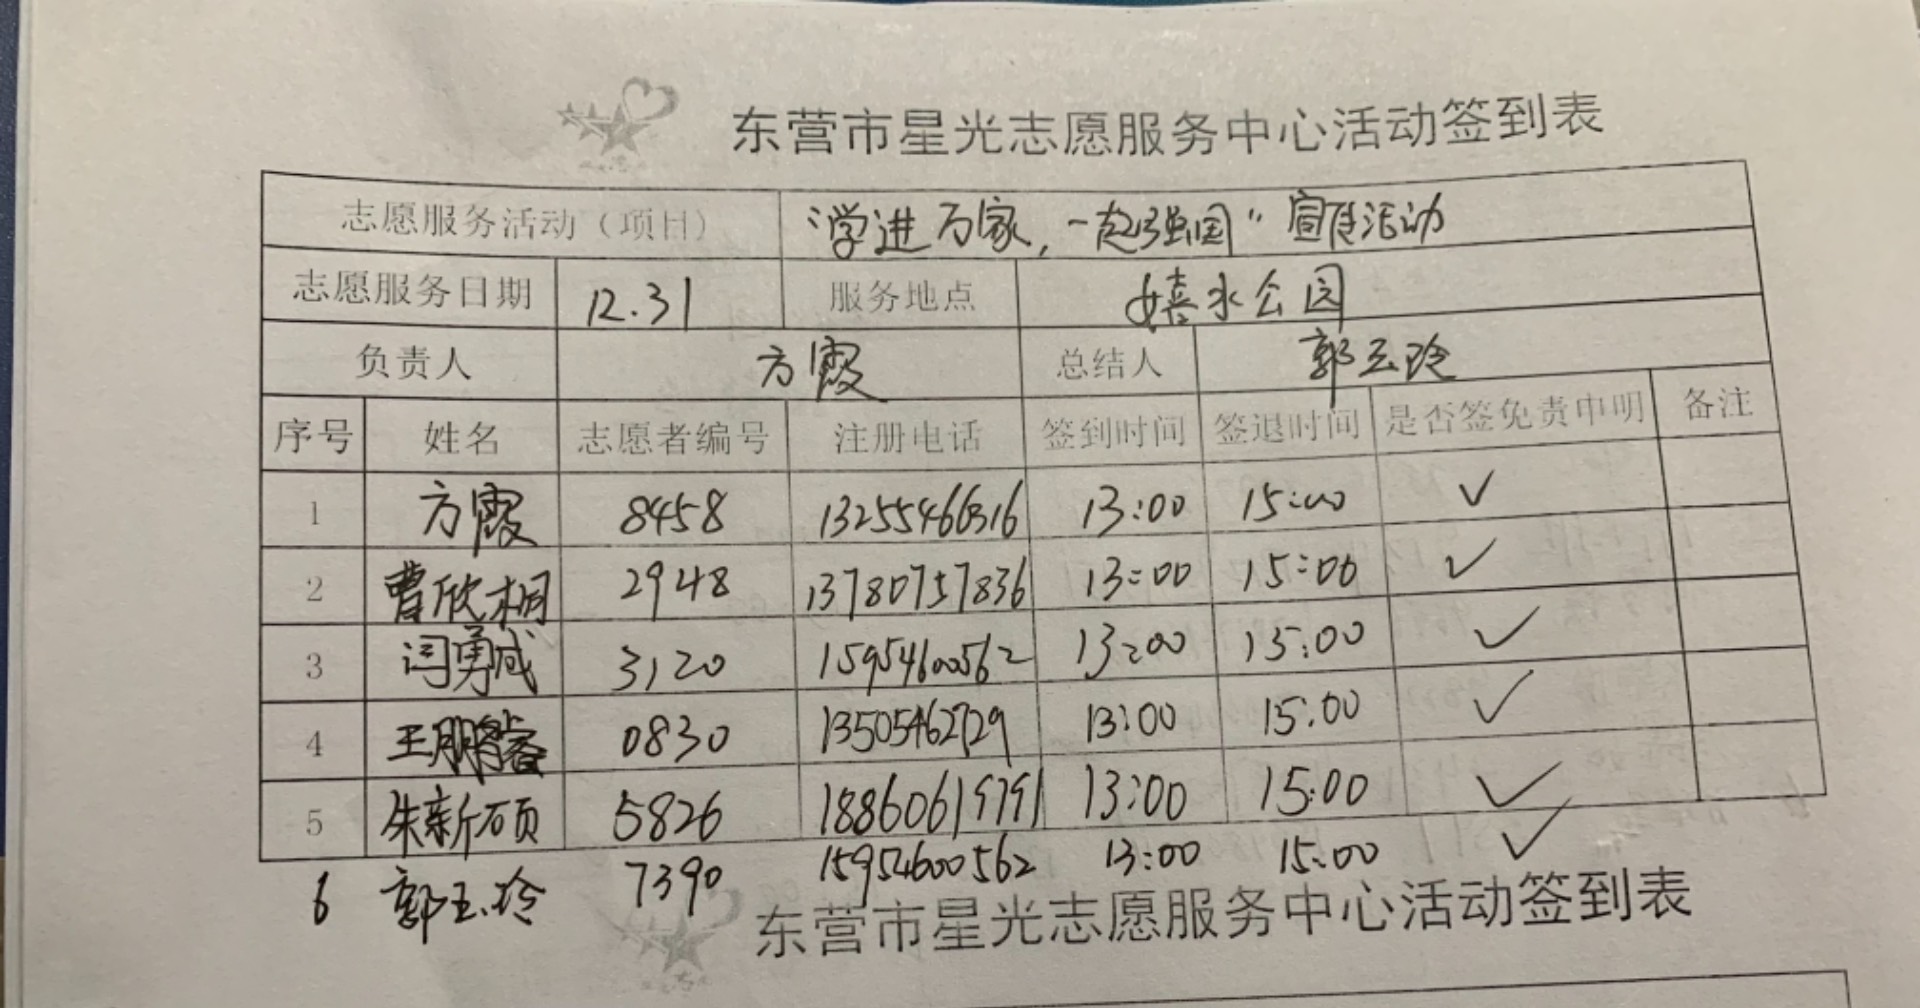 东营市星光志愿服务中心活动签到表
志愿服务活动（项目） “学进万家，一起强国”宣传活动
志愿服务日期 12.31 服务地点 嬉水公园
负责人 方霞 总结人 郭玉玲
序号 姓名 志愿者编号 注册电话 签到时间 签退时间 是否签免责申明 备注
1 方霞 8458 13255466316 13:00 15:00 ✓
2 曹欣桐 2948 13780757836 13:00 15:00 ✓
3 闫勇成 3120 15954600562 13:00 15:00 ✓
4 0830 13505462729 13:00 15:00 ✓
5 朱新硕 5826 18860619791 13:00 15:00 ✓
6 郭玉玲 7390 15954600562 13:00 15:00 ✓
东营市星光志愿服务中心活动签到表